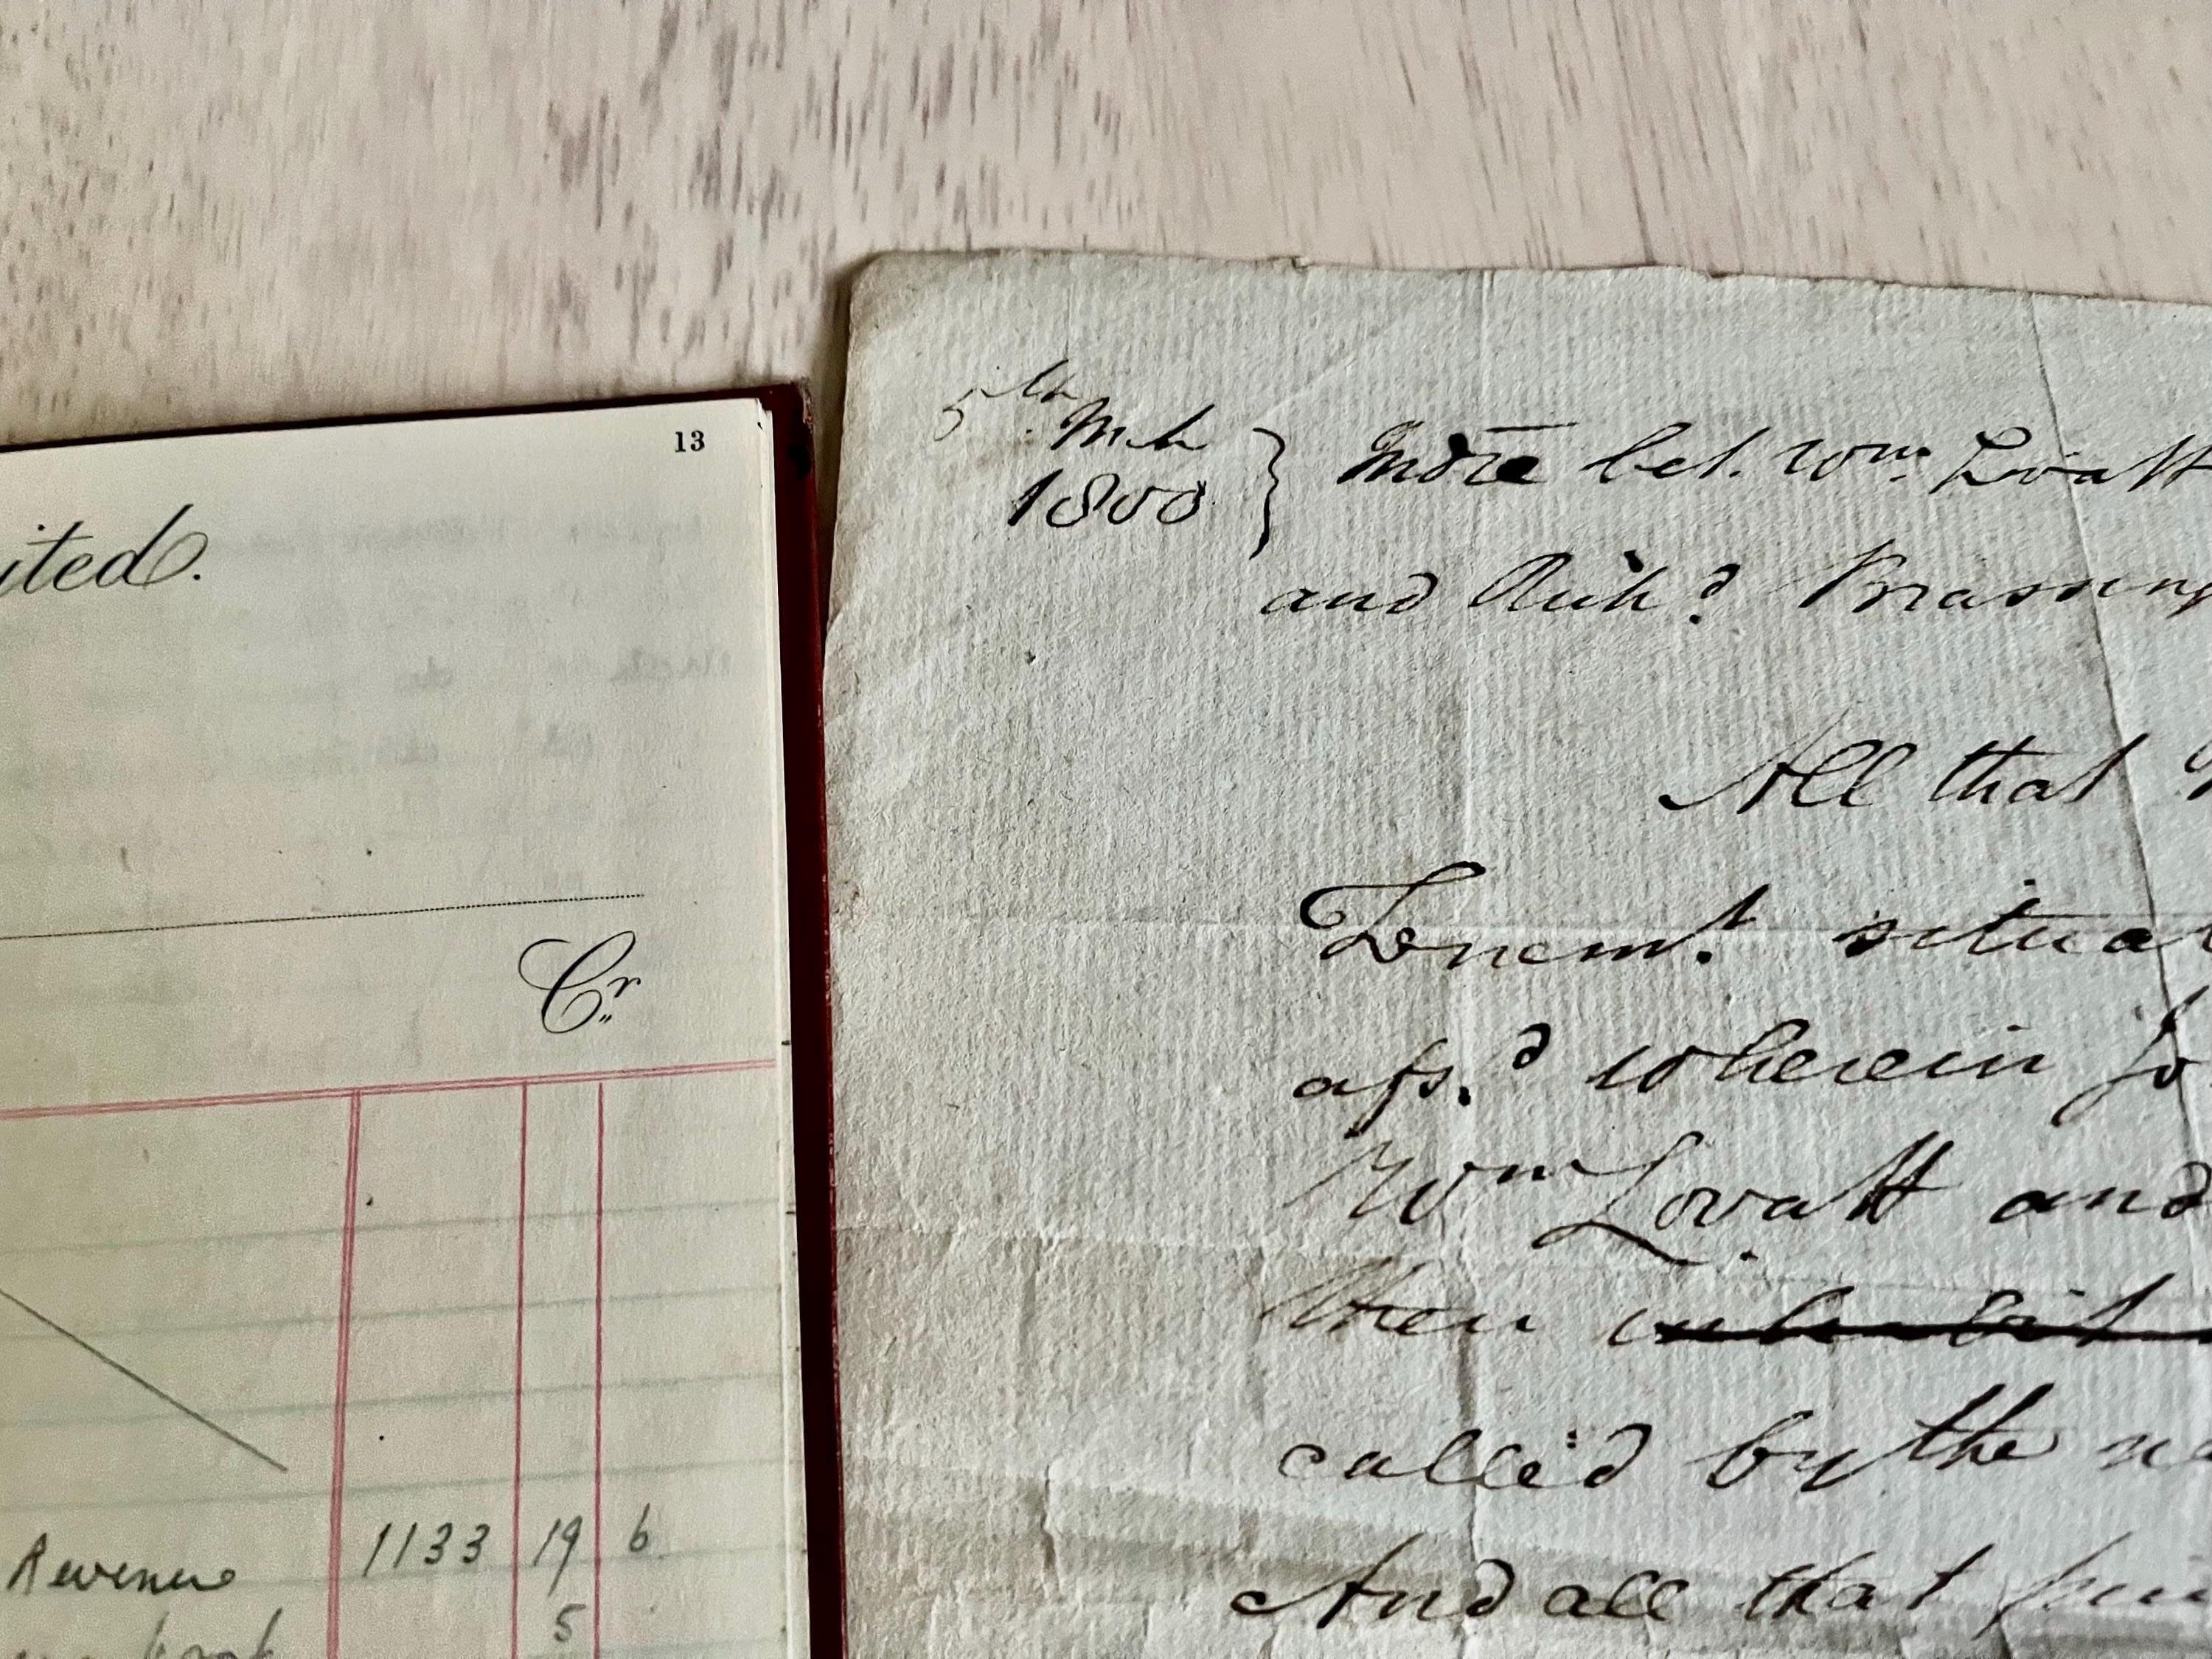 13
ited.
Cr
Revenue 1133 19 6
5
5th Mch
1800
Indre bet. Wm. Lovatt
and Richd
All that
Tenemt. situa
afs.d wherein fo
Wm Lovatt and
then inhabit
called by the na
And all that